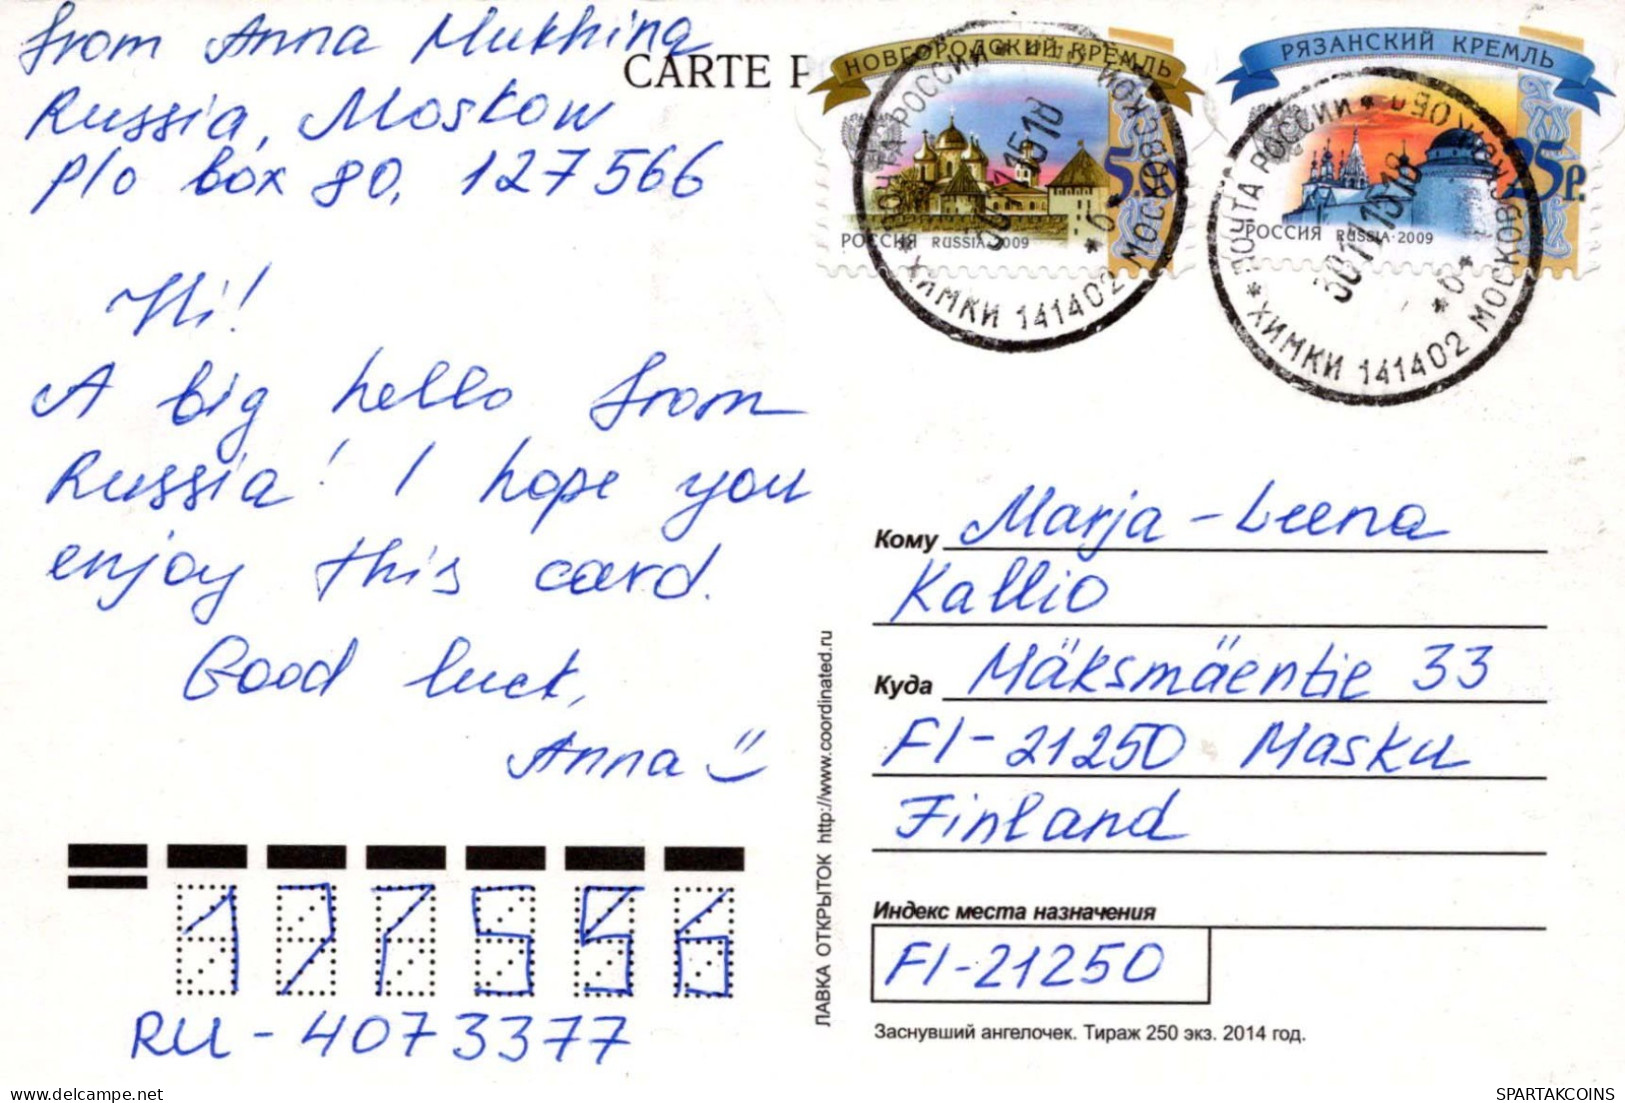 from Anna Mukhina
Russia, Moskow
p/o box 80, 127566
CARTE P
Hi!
A big hello from
Russia! I hope you
enjoy this card.
Good luck,
Anna
RU-4073377
ЛАВКА ОТКРЫТОК http://www.coordinated.ru
НОВГОРОДСКИЙ КРЕМЛЬ
РОССИЯ RUSSIA·2009
ПОЧТА РОССИИ
ХИМКИ 141402 МОСКОВСКОЙ
РЯЗАНСКИЙ КРЕМЛЬ
25р.
РОССИЯ RUSSIA·2009
ПОЧТА РОССИИ
ХИМКИ 141402 МОСКОВСКАЯ ОБЛ
Кому Marja-Leena
Kallio
Куда Mäksmäentie 33
FI-21250 Masku
Finland
Индекс места назначения
FI-21250
Заснувший ангелочек. Тираж 250 экз. 2014 год.
SPARTAKCOINS